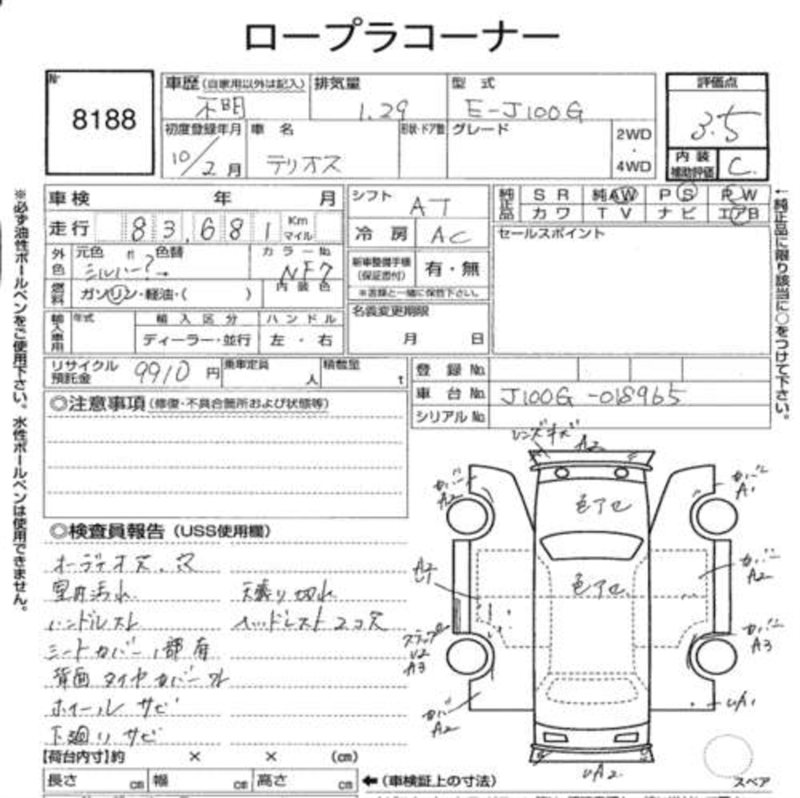 ロープラコーナー
№
8188
車歴 (自家用以外は記入)
不明
排気量
1.29
型式
E-J100G
評価点
3.5
初度登録年月
10/2月
車名
テリオス
形状・ドア数
グレード
2WD
・
4WD
内装
補助評価
C.
車検 年 月
走行 83,681 Km
マイル
シフト
AT
冷房
AC
純正品
SR 純AW PS PW
カワ TV ナビ エアB
外色
元色 色替
シルバー?→
カラーNo.
NF7
新車整備手帳
(保証書付)
有・無
※書類と一緒に保管下さい。
セールスポイント
燃料
ガソリン・軽油・( )
内装色
輸入車用
年式
輸入区分
ハンドル
ディーラー・並行
左・右
名義変更期限
月 日
リサイクル
預託金
9910円
乗車定員
人
積載量
t
登録№
車台№
J100G-018965
シリアル№
◎注意事項 (修復・不具合箇所および状態等)
◎検査員報告 (USS使用欄)
天井汚れ
天張り切れ
ヘッドレスト2コ欠
シートカバー1部有
背面タイヤカバー
ホイールサビ
下廻りサビ
レンズキズ
A2
カバー
A2
カバー
A1
色アセ
色アセ
カバー
A2
カバー
A3
U2
A3
カバー
A2
UA1
UA2
スペア
【荷台内寸】約 × × (cm)
長さ cm 幅 cm 高さ cm
←(車検証上の寸法)
※必ず油性ボールペンをご使用下さい。水性ボールペンは使用できません。
←純正品に限り該当に○をつけて下さい。